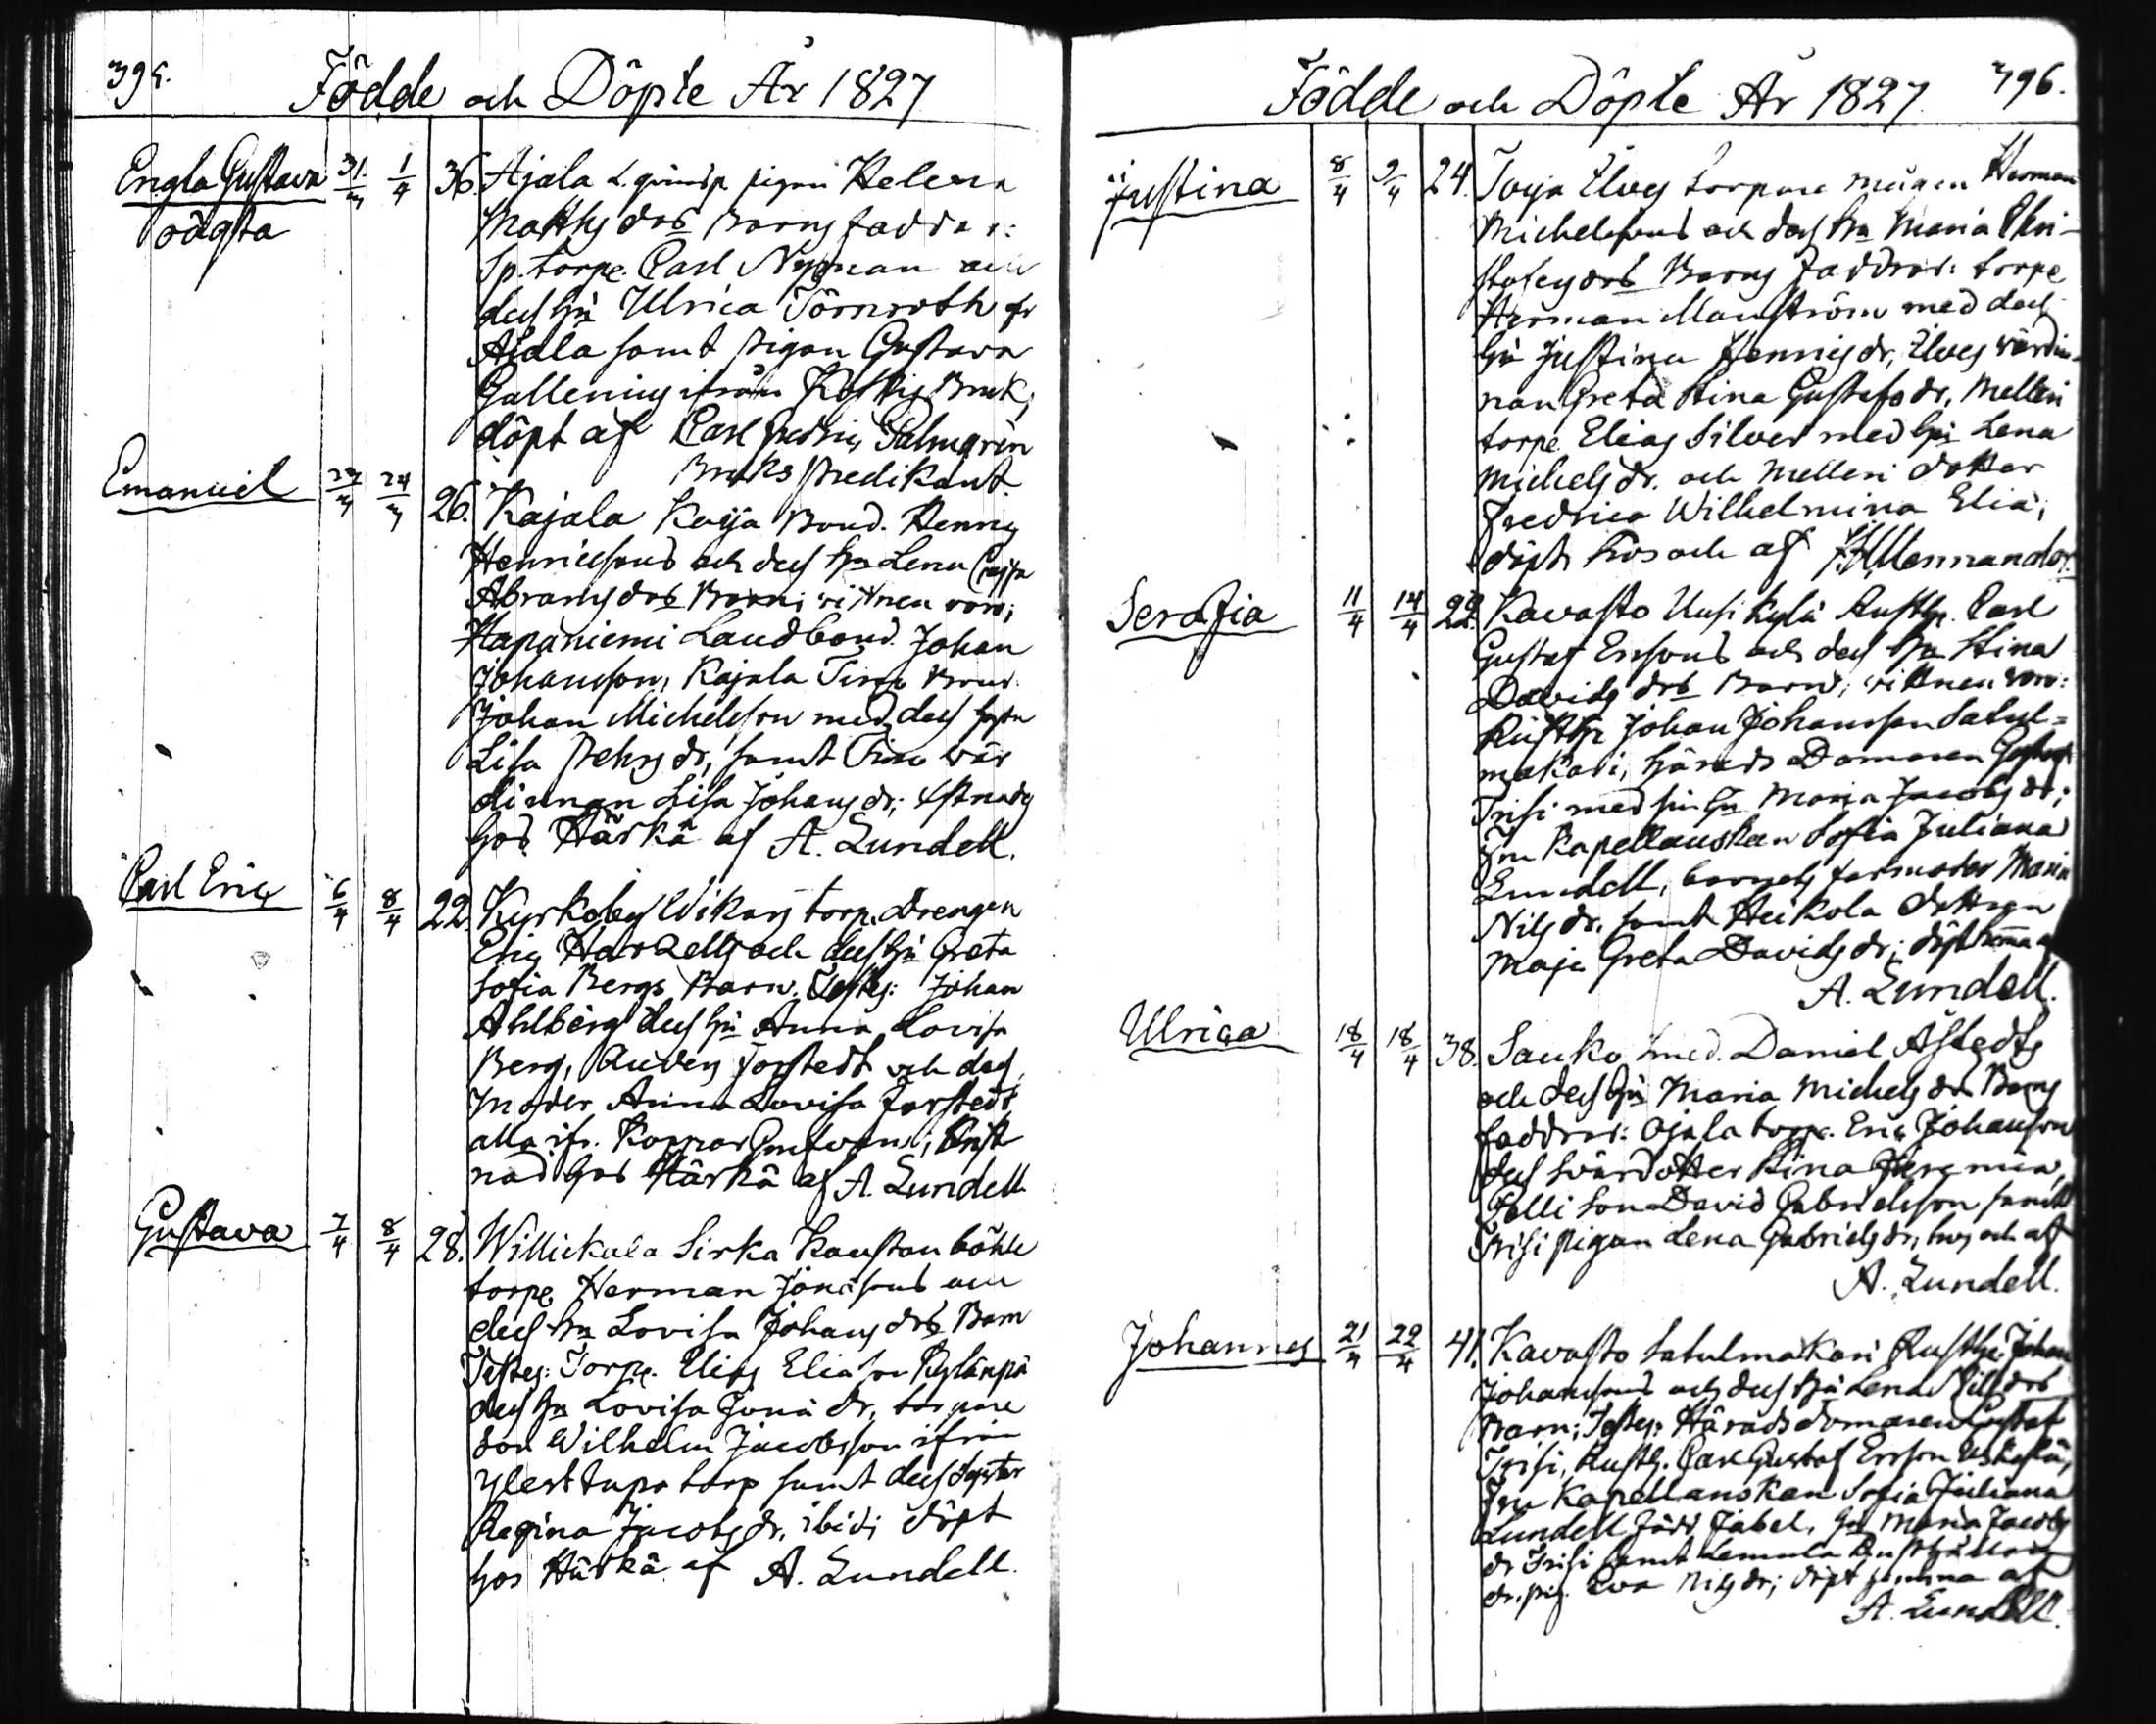 395.
Födde och Döpte År 1827
Engla Gustava 31/3 1/4 36. Ajala L. qvinsp pigan Helena
oägta Matts drs Barns faddra:
Sp. torpe. Carl Nyman och
dess hu Ulrica Törnroth fr
Ajala samt pigan Gustava
Gallenius ifrån Koskis Bruk;
döpt af Carl Fredric Palmgrén
Bruks predikant.
Emanuel 23/3 24/3 26. Kajala Kaija Bond. Henric
Henricssons och dess hu Lena Cajsa
Abrams drs Barn; vittnen voro;
Hapaniemi Landbond. Johan
Johansson, Kajala Timo Bond.
Johan Michelsson med dess hustru
Lisa Pehrs dr, samt Timo vär
dinnan Lisa Johans dr; Christnadt
hos Härkä af A. Lundell.
Carl Eric 6/4 8/4 22. Kyrkoby Wikars torp. Drengen
Eric Harzells och dess hu Greta
Sofia Bergs Barn. Testes: Johan
Ahlberg dess hu Anna Lovisa
Berg, Anders Forstedt och dess
moder Anna Lovisa Forstedt
alla ifr. Koppar Grufvan; Christ
nad hos Härkä af A. Lundell
Gustava 7/4 8/4 28. Willickala Sirka Kaustan böhle
torpe Herman Jonassons och
dess hu Lovisa Johans drs Barn
Testes: Torpe. Elias Eliasson Kylänpä
dess hu Lovisa Jona dr, torpare
son Wilhelm Jacobsson ifrån
torp samt dess syster
Regina Jacobs dr, ibid; döpt
hos Härkä af A. Lundell.
396.
Födde och Döpte År 1827
Justina 8/4 9/4 24. Torpare mågen Herman
Michelssons och dess hu Maria Chri-
stofers drs Barns faddrar: torpe
Herman Manström med dess
hu Justina Henrics dr, värdin-
nan Greta Stina Gustafs dr, Melleri
torpe Elias Silver med hu Lena
Michels dr. och Melleri dotter
Fredrica Wilhelmina Eliä;
döpt hos och af
Serafia 11/4 14/4 22. Kavasto Uusikylä Rusth. Carl
Gustaf Erssons och dess hu Stina
Davids drs Barn; vittnen voro:
Rusth Johan Johansson Satul-
makari, härads Domaren Gustaf
Trisi med sin hu Maria Jacobs dr;
Fru Kapellanskan Sofia Juliana
Lundell, barnets farmoder Maria
Nils dr, samt Heikola dottren
Maja Greta Davids dr; döpt hemma af
A. Lundell.
Ulrica 18/4 18/4 38. Sauko smed. Daniel Åstedts
och dess hu Maria Michels drs Barns
faddrar: Ojala torpe. Eric Johansson
dess svärdotter Stina Jeremiä,
Pelli son David Gabrielsson samt
Trisi pigan Lena Gabriels dr, hos och af
A. Lundell.
Johannes 21/4 22/4 41. Kavasto Satulmakari Rusth. Johan
Johanssons och dess hu Lena Nils drs
Barn; Testes: Häradsdomaren Gustaf
Trisi, Rusth. Carl Gustaf Ersson Uusikylä,
Fru Kapellanskan Sofia Juliana
Lundell född Fabel, hu Maria Jacobs
dr Trisi samt Lemula Rusthållare
dr. pig. Eva Nils dr; döpt hemma af
A. Lundell.